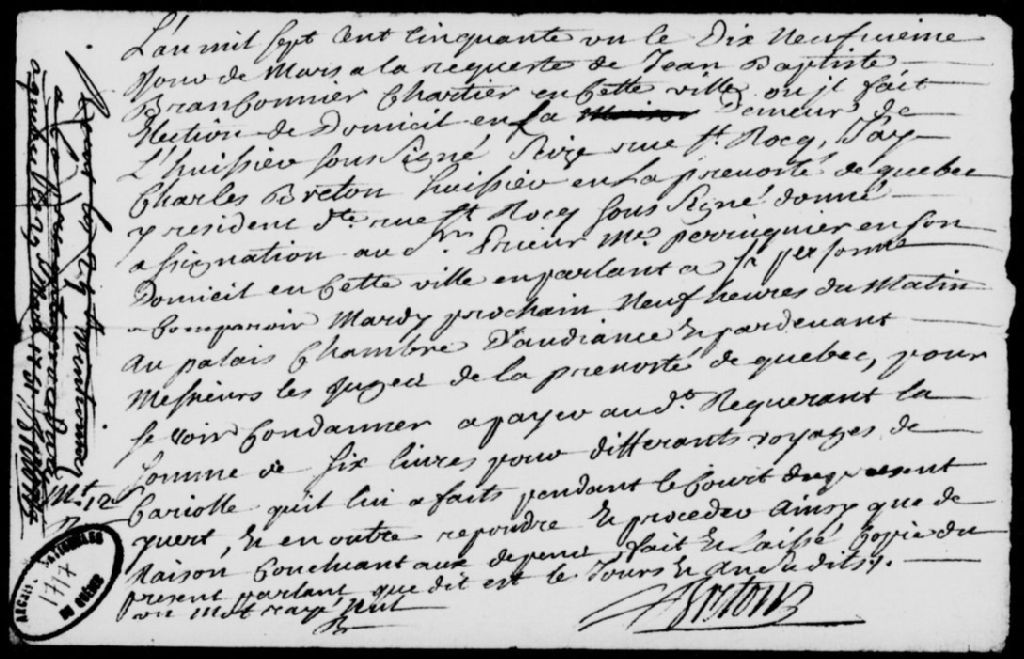 L'an mil sept Cent Cinquante un le Dix Neufvieme
Jour de Mars a la requeste de Jean Baptiste
Branconnier Chartier en Cette ville ou jl fait
Election de Domicil en sa Demeure de
L'huissier sous Signé Size rue St. Rocq, J'ay
Charles Breton huissier en La prevosté de quebec
y resident dte. rue St Rocq sous Signé donné
assignation au Sr. Prieur Me. perruquier en son
Domicil en Cette ville en parlant a sa personne
a Comparoir Mardy prochain Neuf heures du Matin
au palais Chambre D'audiance & pardevant
Messieurs les Juges de la prevosté de quebec, pour
se voir Condanner a payer au dt. Requerant la
Somme de six livres pour differants voyages de
Cariolle qu'il lui a faits pendant le Court du present
yvert, & en outre repondre & proceder ainsy que de
Raison Concluant aux depens, fait & Laissé Copie du
present parlant que dit est le Jours & an susdits.
un mot rayé Nul
Breton
Mt. 12
ARCHIVES NATIONALES
1717
DU QUÉBEC